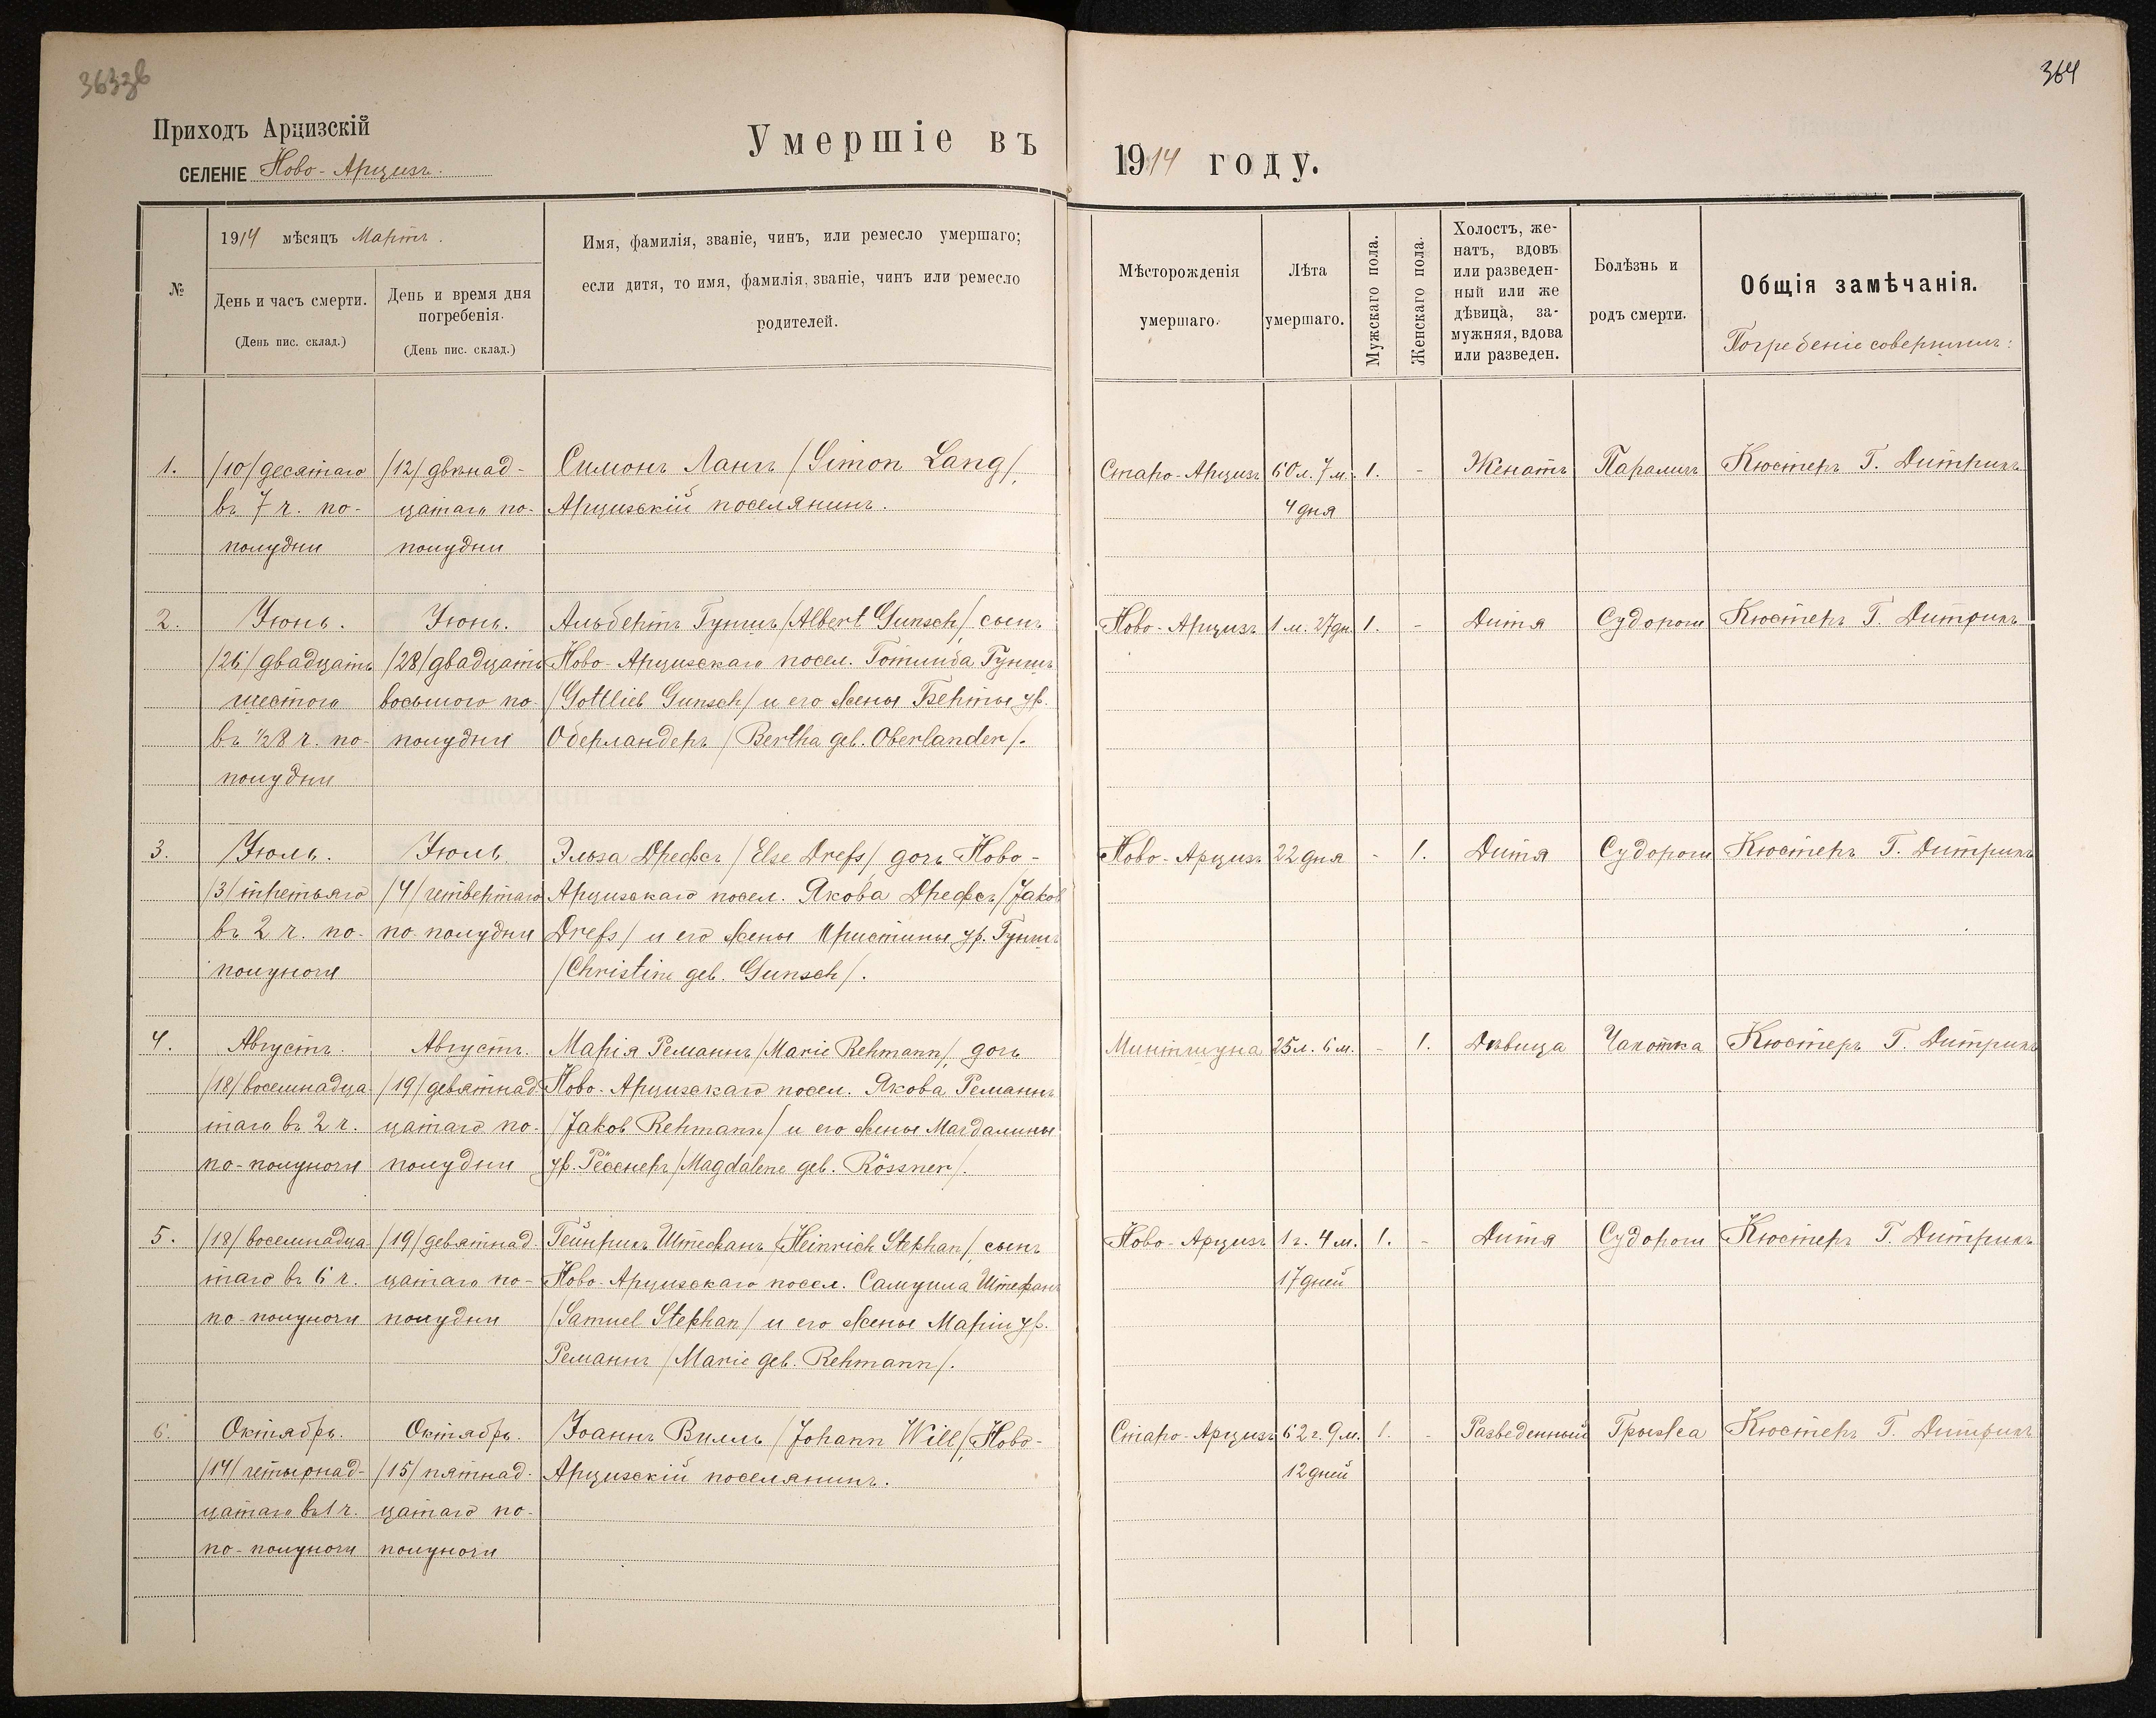 363зв
364
Приходъ Арцизскій
СЕЛЕНІЕ Ново-Арцизъ.
Умершіе въ 1914 году.
№
1914 мѣсяцъ Мартъ.
День и часъ смерти.
(День пис. склад.)
День и время дня
погребенія.
(День пис. склад.)
Имя, фамилія, званіе, чинъ, или ремесло умершаго;
если дитя, то имя, фамилія, званіе, чинъ или ремесло
родителей.
Мѣсторожденія
умершаго.
Лѣта
умершаго.
Мужскаго пола.
Женскаго пола.
Холостъ, же-
натъ, вдовъ
или разведен-
ный или же
дѣвица, за-
мужняя, вдова
или разведен.
Болѣзнь и
родъ смерти.
Общія замѣчанія.
Погребеніе совершилъ:
1. /10/ десятаго /12/ двѣнад- Симонъ Лангъ /Simon Lang/, Старо-Арцизъ 60 л. 7 м. 1. - Женатъ Параличъ Кюстеръ Г. Дитрихъ
въ 7 ч. по- цатаго по- Арцизскій поселянинъ. 4 дня
полудни полудни
2. Іюнь. Іюнь. Альбертъ Гуншъ /Albert Gunsch/, сынъ Ново-Арцизъ 1 м. 27 дн. 1. - Дитя Судороги Кюстеръ Г. Дитрихъ
/26/ двадцать /28/ двадцать Ново-Арцизскаго посел. Готлиба Гуншъ
шестого восьмого по- /Gottlieb Gunsch/ и его жены Берты ур.
въ ½8 ч. по- полудни Оберландеръ /Bertha geb. Oberlander/.
полудни
3. Іюль. Іюль. Эльза Дрефсъ /Else Drefs/, дочь Ново- Ново-Арцизъ 22 дня - 1. Дитя Судороги Кюстеръ Г. Дитрихъ
/3/ третьяго /4/ четвертаго Арцизскаго посел. Якова Дрефсъ /Jakob
въ 2 ч. по- по-полудни Drefs/ и его жены Христины ур. Гуншъ
полуночи /Christine geb. Gunsch/.
4. Августъ. Августъ. Марія Реманнъ /Marie Rehmann/, дочь Минтшуна 25 л. 6 м. - 1. Дѣвица Чахотка Кюстеръ Г. Дитрихъ
/18/ восемнадца- /19/ девятнад- Ново-Арцизскаго посел. Якова Реманнъ
таго въ 2 ч. цатаго по- /Jakob Rehmann/ и его жены Магдалины
по-полуночи полудни ур. Рёсснеръ /Magdalene geb. Rössner/.
5. /18/ восемнадца- /19/ девятнад- Гейнрихъ Штефанъ /Heinrich Stephan/, сынъ Ново-Арцизъ 1 г. 4 м. 1. - Дитя Судороги Кюстеръ Г. Дитрихъ
таго въ 6 ч. цатаго по- Ново-Арцизскаго посел. Самуила Штефанъ 17 дней
по-полуночи полудни /Samuel Stephan/ и его жены Маріи ур.
Реманнъ /Marie geb. Rehmann/.
6. Октябрь. Октябрь. Іоаннъ Вилль /Johann Will/, Ново- Старо-Арцизъ 62 г. 9 м. 1. - Разведенный Грыжа Кюстеръ Г. Дитрихъ
/14/ четырнад- /15/ пятнад- Арцизскій поселянинъ. 12 дней
цатаго въ 1 ч. цатаго по-
по-полуночи полуночи